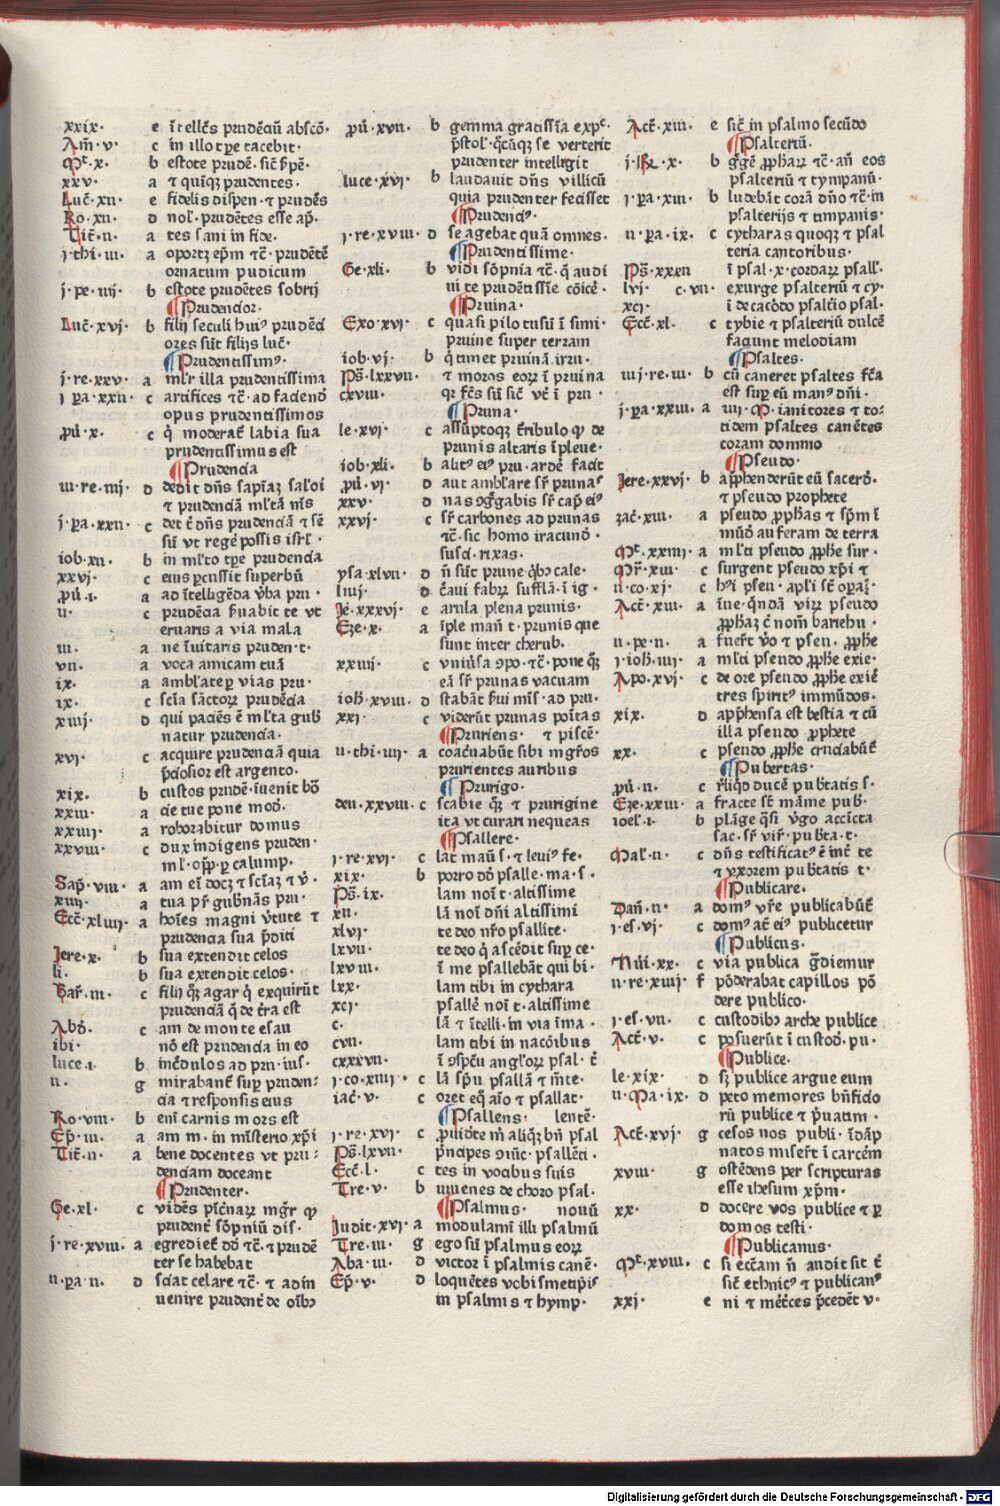 xxix· e ītellc̄s prudēciū absco̅·
Am̄·v· c in illo tꝑe tacebit·
Mt̄·x· b estote prudē· sic̄ s̄pē·
xxv· a ⁊ quīqꝫ prudentes·
Luc̄·xii· e fidelis dispen·⁊ prudēs
Ro·xii· d nol̄·prudētes esse ap̄·
Tit̄·ii· a tes sani in fide·
j·thi·iii· a oportꝫ ep̄m ⁊c̄· prudētē
ornatum pudicum
j·pe·iiij· b estote prudētes sobrij
¶Prudencior·
Luc̄·xvj· b filij seculi huiꝰ prudēci
ores sūt filijs luc̄·
¶Prudentissimꝰ·
j·re·xxv· a ml̄r illa prudentissima
j pa·xxii· c artifices ⁊c̄·ad faciend
opus prudentissimos
ꝓū·x· c q̇ moderat̄ labia sua
prudentissimus est
¶Prudencia
iii·re·iiij· d dedit dn̄s sapīaꝫ sal̄oi
⁊ prudenciā ml̄tā nīs
j·pa·xxii· c det t̄ dn̄s prudenciā ⁊ sē
sū vt regē possis isrl̄·
iob·xii· b in ml̄to tꝑe prudencia
xxvj· c eius ꝑcussit superbū
ꝓū·i· a ad ītelligēda v̄ba pru·
ii· c prudēcia s̄uabit te vt
eruaris a via mala
iii· a ne īuitaris pruden·t·
vii· a voca amicam tuā
ix· a ambl̄ate ꝑ vias pru·
ix· c scīa sāctoꝝ prudēcia
xiiij· d qui paciēs ē ml̄ta gub̄
natur prudencia·
xvj· c acquire prudenciā quia
p̄ciosior est argento·
xix· b custos prudē·iuenit bo̅
xxiii· a cie tue pone mod̄·
xxiiij· a roborabitur domus
xxviii· c dux indigens pruden·
ml̄·opp̄·ꝑ calump·
Sap̄·viii· a am eī docꝫ ⁊ scīaꝫ ⁊ v̄·
xiiij· a tua pr̄ gub̄nās pru·
Ecc̄·xliiij· a hoīes magni v̄tute ⁊
prudencia sua p̄diti
Jere·x· b sua extendit celos
li· b sua extendit celos·
Bar̄·iii· c filij qꝫ agar q̇ exquirūt
prudenciā q̄ de t̄ra est
Abd̄· c am de monte esau
ibi· no̅ est prudencia in eo
luce·i· b incredulos ad pru·ius·
ii· g mirabant̄ suꝑ pruden:
cia ⁊ responsis eius
Ro·viii· b enī carnis mors est
Ep̄·iii· a am m·in mīsterio xp̄i
Tit̄·ii· a bene docentes vt pru:
denciam doceant
¶Prudenter·
Ge·xl· c vidēs pīc̄naꝝ mgr̄ ꝙ
prudent̄ so̅pniū dis·
j·re·xviii· a egrediet̄ dd̄ ⁊c̄·⁊ prudē
ter se habebat
ii·pa·ii· d sciat celare ⁊c̄·⁊ adin
uenire prudent̄ de oībꝫ
ꝓū·xvii· b gemma gratissīa expc̄·
p̄stol̄·q̄cūqꝫ se verterit
prudenter intelligit
luce·xvj· b laudauit dn̄s villicū
quia prudenter fecisset
¶Prudenciꝰ·
j·re·xviii· d se agebat quā omnes·
¶Prudentissime·
Ge·xli· b vidi so̅pnia ⁊c̄·q̄ audi
ui te prudētissīe co̅icē·
¶Pruina·
Exo·xvj· c quasi pilo tusū ī simi·
pruine super terram
iob·vj· b q̇ timet pruinā irru·
Ps̄·lxxvii· ⁊ moros eoꝝ ī pruina
cxviii· qꝛ fc̄s sū sic̄ vt̄ ī pru·
¶Pruna·
le·xvj· c assūptoqꝫ t̄ribulo ꝙ de
prunis altaris īpleue·
iob·xli· b alitꝰ eiꝰ pru·ardē·facit
ꝓū·vj· d aut ambl̄are sr̄ prunaˢ
xxv· d nas ꝯgḡabis sr̄ cap̄ eiꝰ
xxvj· c sr̄ carbones ad prunas
⁊c̄·sic homo iracund·
susci·rixas·
ysa·xlvii· d n̄ sūt prune q̇bꝫ cale·
liiij· d c̄aui fabꝝ sufflā·ī ig·
Je·xxxvj· e arula plena prunis·
Eze·x· a īple man̄ t·prunis que
sunt inter cherub·
xxiiij· c vniūsa ꝯpo·⁊c̄·pone qꝫ
eā sr̄ prunas vacuam
ioh̄·xviii· d stabāt s̄ui mīs̄·ad pru·
xxj· c viderūt prunas po̅itas
¶Pruriens· ⁊ piscē·
ii·thi·iiij· a coac̄uabūt sibi mgr̄os
prurientes auribus
¶Prurigo·
deu·xxviii· c scabie qꝫ ⁊ prurigine
ita vt curari nequeas
¶Psallere·
j·re·xvj· c lat manū s·⁊ leuiꝰ fe·
xix· b porro dd̄ psalle·ma·s·
Ps̄·ix· lam noī t·altissime
xii· lā noī dn̄i altissimi
xlvj· te deo nr̄o psallite·
lxvii· te deo q̇ ascēdit suꝑ ce·
lxviii· ī me psallebāt qui bi·
lxx· lam tibi in cythara
xcj· psallē noī t·altissime
c· lā ⁊ ītelli·in via īma·
cvii· lam tibi in nacio̅ibus
cxxxvii· ī ꝯspc̄u angl̄oꝝ psal·t̄
j·co·xiiij· c lā sp̄u psallā ⁊ mēte·
iac̄·v· c oret eq̄ aīo ⁊ psallat·
¶Psallens· lentē·
j·re·xvj· c ꝓuidēte m̄ aliqꝫ bn̄ psal
Ps̄·lxvii· p̄ncipes ꝯiūc̄·psallēti·
Ecc̄·l· c tes in vocibus suis
Tre·v· b iuuenes de choro psal·
¶Psalmus· nouū
Judit·xvj a modulamī illi psalmū
Tre·iii· g ego sū psalmus eoꝝ
Aba·iii· d victor ī psalmis canē·
Ep̄·v· d loquētes vobismetip̄is
in psalmis ⁊ hymp·
Act̄·xiii· e sic̄ in psalmo secūdo
¶Psalteriū·
j·Re·x· b gḡē ꝓphaꝝ ⁊c̄·an̄ eos
psalteriū ⁊ tympanū·
j·pa·xiii· b ludebāt corā dn̄o ⁊c̄·in
psalterijs ⁊ timpanis·
ii·pa·ix· c cytharas quoqꝫ ⁊ psal
teria cantoribus·
Ps̄·xxxii ī psal·x·cordaꝝ psall̄·
lvj· c·vii· exurge psalteriū ⁊ cy·
xcj· ī decacordo psal̄cio psal·
Ecc̄·xl· c tybie ⁊ psalteriū dulcē
faciunt melodiam
¶Psaltes·
iiij·re·iii· b cū caneret psaltes fc̄a
est suꝑ eū manꝰ dn̄i·
j·pa·xxiii· a iiij·M·ianitores ⁊ to:
tidem psaltes canētes
coram domino
¶Pseudo·
Jere·xxvj· b app̄henderūt eū sacerd·
⁊ pseudo prophete
zac̄·xiii· a pseudo ꝓphas ⁊ sp̄m ī
mūd auferam de terra
Mt̄·xxiiij· a ml̄ti pseudo ꝓphe sur·
Mr̄·xiii· c surgent pseudo xp̄i ⁊
ii·co·xj· c hꝰi pseu·apl̄i st̄ oꝑaꝫ·
Act̄·xiii· a īue·q̄ndā viꝝ pseudo
ꝓphaꝫ c̄ nom̄ bariehu·
ii·pe·ii· a fuer̄t v̄o ⁊ pseu·ꝓphe
j·ioh̄·iiij· a ml̄ti pseudo ꝓphe exie·
Apo·xvj· c de ore pseudo ꝓphe exiē
tres spiritꝰ immūdos·
xix· d app̄hensa est bestia ⁊ cū
illa pseudo ꝓphete
xx· c pseudo ꝓphe cruciabūt̄
¶Pubertas·
ꝓū·ii· c r̄liq̄d ducē pub̄tatis s·
Eze·xxiii· a fracte st̄ māme pub̄·
ioel̄·i· b plāge q̄si v̄go accīcta
sac·sr̄ vir̄·pub̄ta·t·
Mal̄·ii· c dn̄s testificatꝰ ē īnt̄ te
⁊ vxorem pub̄tatis t·
¶Publicare·
Dan̄·ii· a domꝰ vr̄e publicabūt̄
j·es·vj· c domꝰ ac̄ eiꝰ publicetur
¶Publicus·
Nūi·xx· c via publica ḡdiemur
ii·re·xiiij· f po̅derabat capillos po̅
dere publico·
j·es·vii· c custodibꝫ arche publice
Act̄·v· c posuerūt ī custod·pu·
¶Publice·
le·xix· d sꝫ publice argue eum
ii·Ma·ix· d peto memores bn̄fido
rū publice ⁊ p̄uatim·
Act̄·xvj· g cesos nos publi·īdāp
natos miser̄t ī carcēm
xviii· g ostēdens per scripturas
esse ihesum xp̄m·
xx· d docere vos publice ⁊ ꝑ
domos testi·
¶Publicanus·
Mt̄·xviii· c si ecc̄am n̄ audit sit t̄
sic̄ ethnicꝰ ⁊ publicanꝰ
xxj· e ni ⁊ mēt̄ces p̄cedēt v·
Digitalisierung gefördert durch die Deutsche Forschungsgemeinschaft - DFG